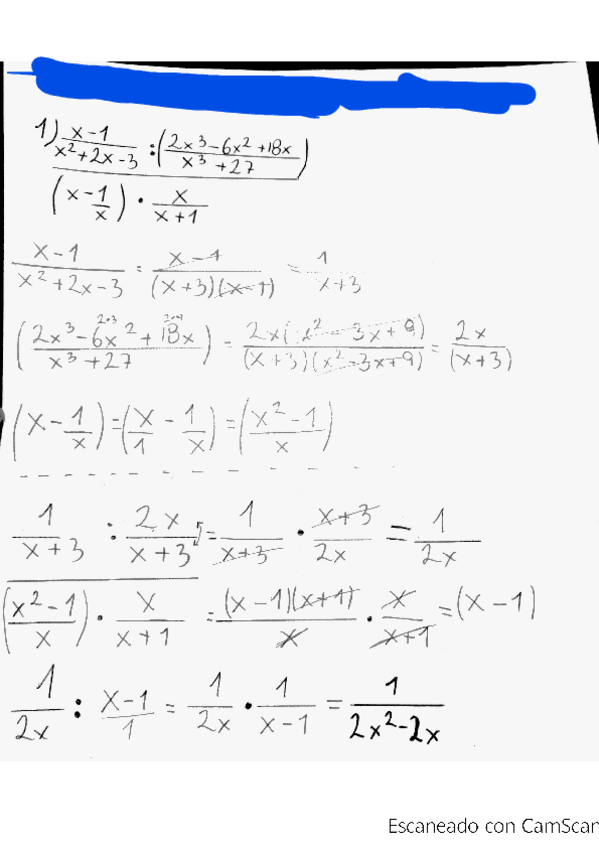 1) x-1 / x²+2x-3 : (2x³-6x²+18x / x³+27)
(x-1/x) · x / x+1
x-1 / x²+2x-3 = x-1 / (x+3)(x-1) = 1 / x+3
(2x³-6x²+18x / x³+27) = 2x(x²-3x+9) / (x+3)(x²-3x+9) = 2x / (x+3)
(x-1/x) = (x/1 - 1/x) = (x²-1 / x)
1 / x+3 : 2x / x+3 = 1 / x+3 · x+3 / 2x = 1 / 2x
(x²-1 / x) · x / x+1 = (x-1)(x+1) / x · x / x+1 = (x-1)
1 / 2x : x-1 / 1 = 1 / 2x · 1 / x-1 = 1 / 2x²-2x
Escaneado con CamScan